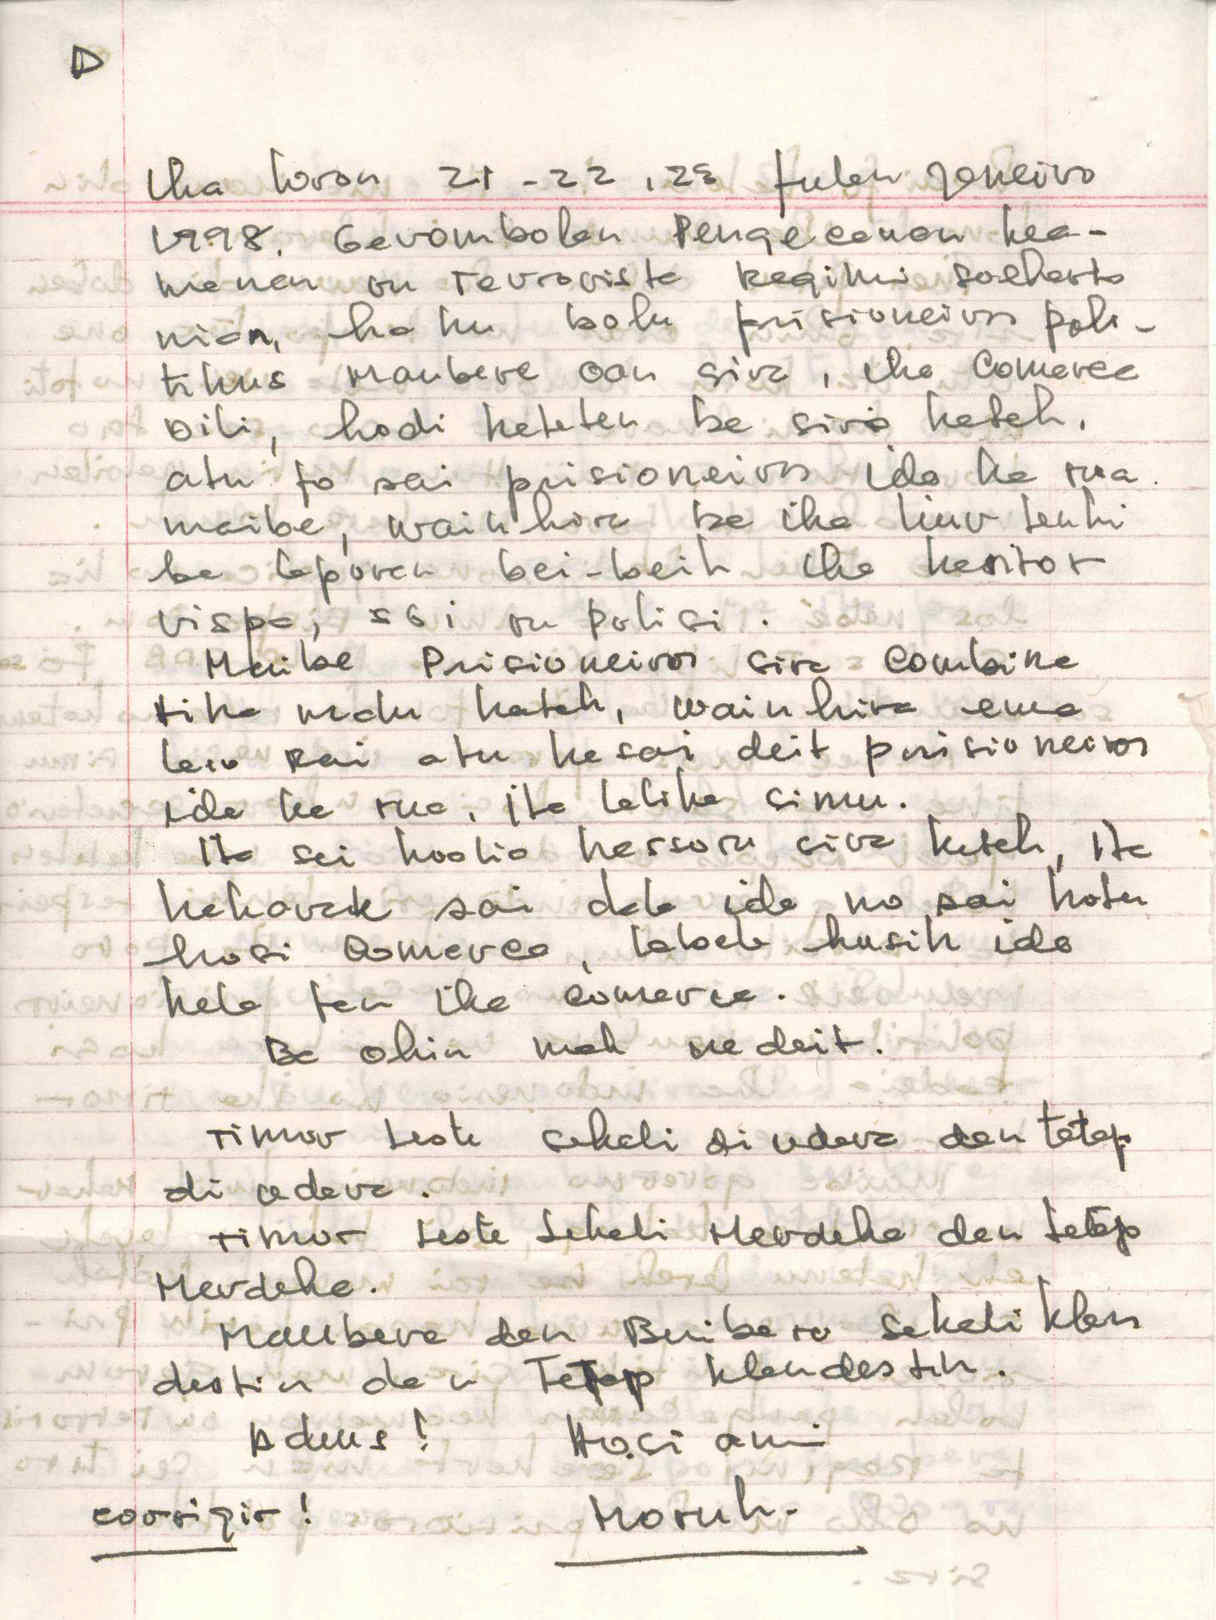 D
Iha loron 21-22, 23 fulan Janeiro
1998. Gerombolan Pengacauan kea-
manan ou Terrorista Regimi Soeharto
nian, hahu bolu prisioneiros poli-
tikus Maubere oan sira, iha Comarca
Dili, hodi hateten ba sira katak,
atu fo sai prisioneiros ida ka rua.
maibe, wainhira ba iha liur tenki
ba laporan bei-beik iha kantor
vispa, SGI ou polisi.
Maibe Prisioneiros sira combina
tiha malu katak, wainhira ema
lao Rai atu hasai deit prisioneiros
ida ka rua, ita lalika simu.
Ita sei koalia hassoru sira katak, Ita
hakarak sai dala ida no sai hotu
hosi Comarca, labele husik ida
hela tan iha comarca.
Ba ohin mak ne deit.
Timor Leste sekali di udara dan tetap
di udara.
Timor Leste sekali Merdeka dan tetap
Merdeka.
Maubere dan Buibere sekali klan
destin dan Tetap klandestin.
Adeus! Hosi ami
corrigir! Moruk.